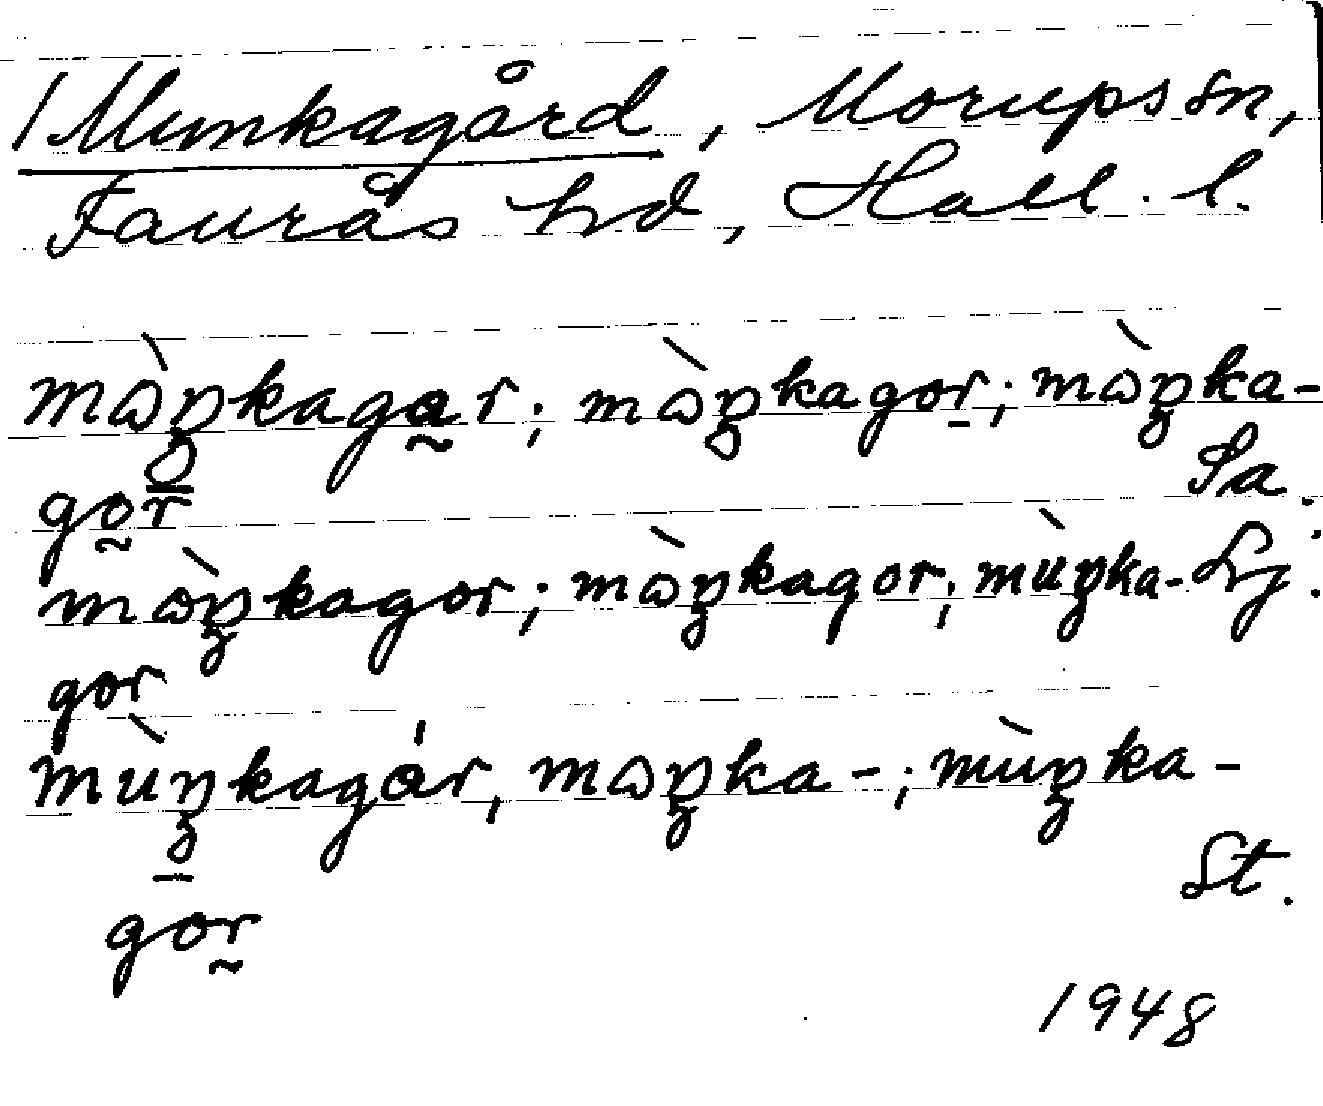 /Munkagård, Morups sn,
Faurås hd, Hall. l.
mɷ̀ŋkagar; mɷ̀ŋkagor; mɷ̀ŋka-
gor Sa.
mɷ̀ŋkagor; mɷ̀ŋkagor; mùŋka- Lj.
gor
mùŋkagár, mɷŋka-; mùŋka-
gor St.
1948